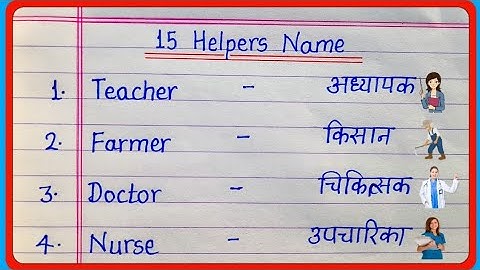 15 Helpers Name
1. Teacher - अध्यापक
2. Farmer - किसान
3. Doctor - चिकित्सक
4. Nurse - उपचारिका